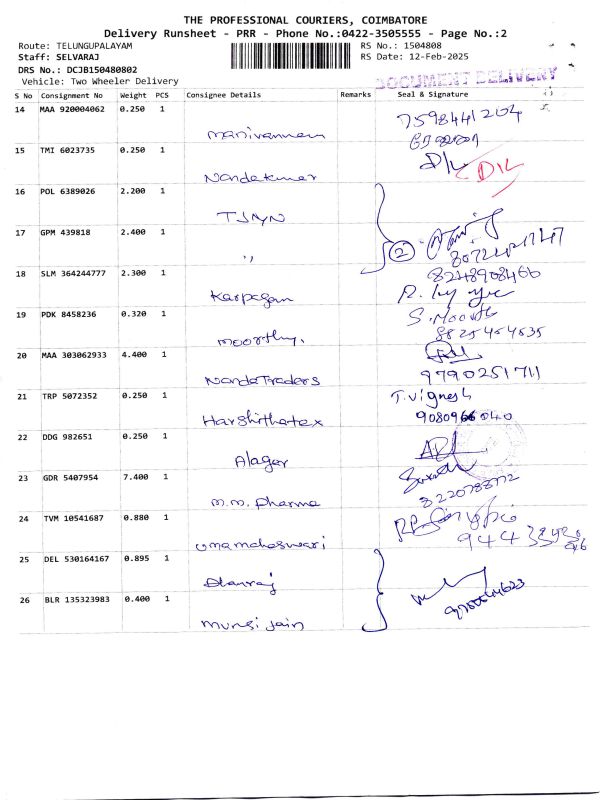 THE PROFESSIONAL COURIERS, COIMBATORE
Delivery Runsheet - PRR - Phone No.:0422-3505555 - Page No.:2
Route: TELUNGUPALAYAM RS No.: 1504808
Staff: SELVARAJ RS Date: 12-Feb-2025
DRS No.: DCJB150480802
Vehicle: Two Wheeler Delivery DOCUMENT DELIVERY
S No Consignment No Weight PCS Consignee Details Remarks Seal & Signature
14 MAA 920004062 0.250 1 7598441204
Manivannan
15 TMI 6023735 0.250 1 D/L D/L
Nandakumar
16 POL 6389026 2.200 1
TJMN
17 GPM 439818 2.400 1 2
,,
18 SLM 364244777 2.300 1 8248908466
Karpagam
19 PDK 8458236 0.320 1 S. Moorthi
Moorthy. 8825454535
20 MAA 303062933 4.400 1
Nanda Traders 9790251711
21 TRP 5072352 0.250 1 T. Vignesh
Harshithatex 9080966040
22 DDG 982651 0.250 1
Alager
23 GDR 5407954 7.400 1
M.M. Pharma 8220788772
24 TVM 10541687 0.880 1
Umamaheswari
25 DEL 530164167 0.895 1
Dhanraj
26 BLR 135323983 0.400 1
Munsi Jain